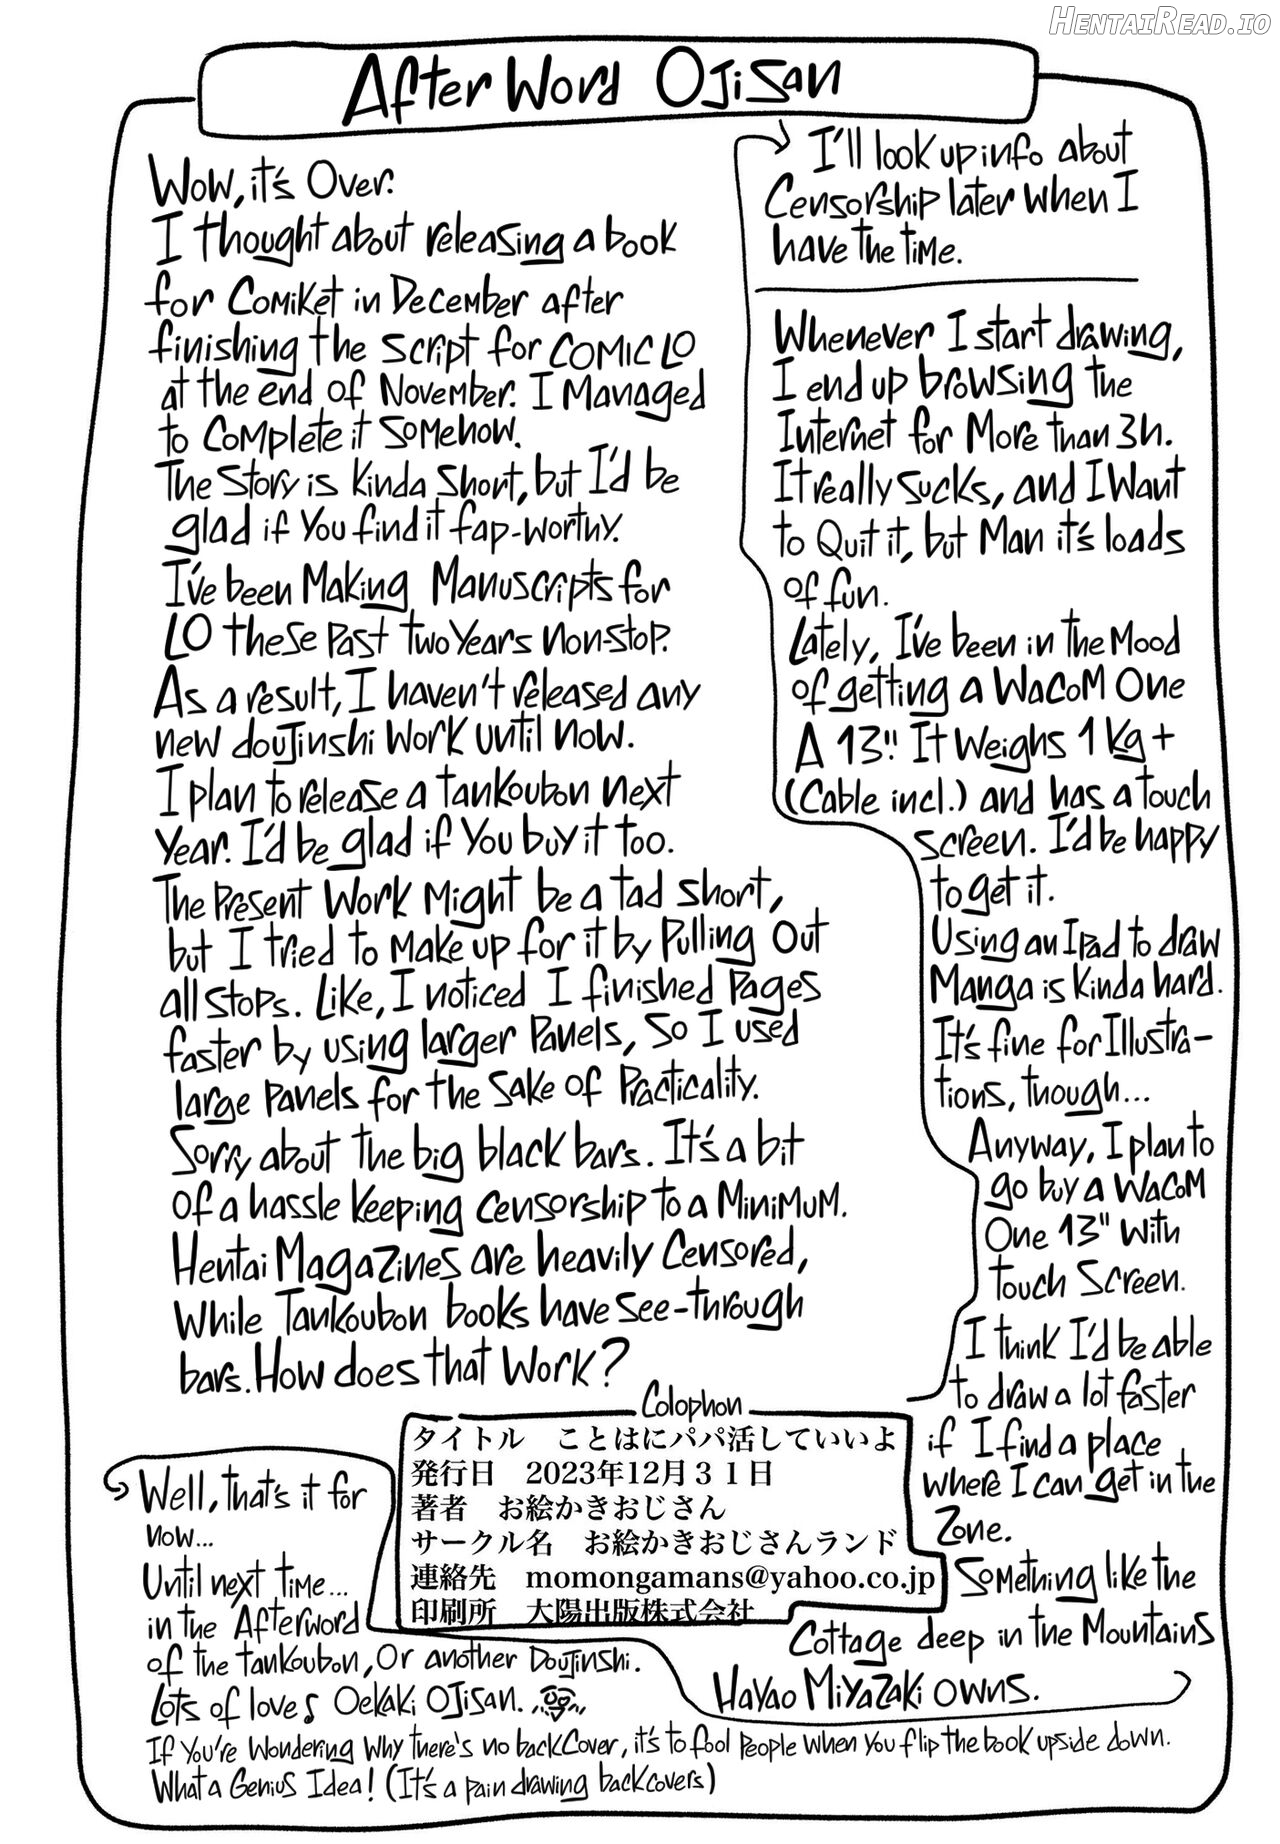 HentaiRead.io
AfterWord Ojisan
Wow, it's Over.
I thought about releasing a book
for Comiket in December after
finishing the script for COMIC LO
at the end of November. I Managed
to Complete it Somehow.
The Story is Kinda Short, but I'd be
glad if You find it fap-worthy.
I've been Making Manuscripts for
LO these past two Years non-stop.
As a result, I haven't released any
new doujinshi Work until now.
I plan to release a tankoubon next
Year. I'd be glad if You buy it too.
The Present Work Might be a tad short,
but I tried to Make up for it by Pulling Out
all stops. Like, I noticed I finished Pages
faster by using larger Panels, So I used
large Panels for the Sake of Practicality.
Sorry about the big black bars. It's a bit
of a hassle keeping censorship to a Minimum.
Hentai Magazines are heavily Censored,
While Tankoubon books have see-through
bars. How does that Work?
I'll look up info about
Censorship later when I
have the time.
Whenever I start drawing,
I end up browsing the
Internet for More than 3h.
It really sucks, and I Want
to Quit it, but Man it's loads
of fun.
Lately, I've been in the Mood
of getting a Wacom One
A 13"! It Weighs 1 Kg +
(Cable incl.) and has a touch
screen. I'd be happy
to get it.
Using an Ipad to draw
Manga is Kinda hard.
It's fine for Illustra-
tions, though...
Anyway, I plan to
go buy a Wacom
One 13" With
touch Screen.
I think I'd be able
to draw a lot faster
if I find a place
where I can get in the
Zone.
Something like the
Cottage deep in the Mountains
Hayao Miyazaki owns.
Colophon
タイトル　ことはにパパ活していいよ
発行日　2023年12月３１日
著者　お絵かきおじさん
サークル名　お絵かきおじさんランド
連絡先　momongamans@yahoo.co.jp
印刷所　大陽出版株式会社
Well, that's it for
now...
Until next time...
in the Afterword
of the tankoubon, Or another Doujinshi.
Lots of love! Oekaki Ojisan.
If You're Wondering Why there's no backcover, it's to fool People when You flip the book upside down.
What a Genius Idea! (It's a pain drawing backcovers)